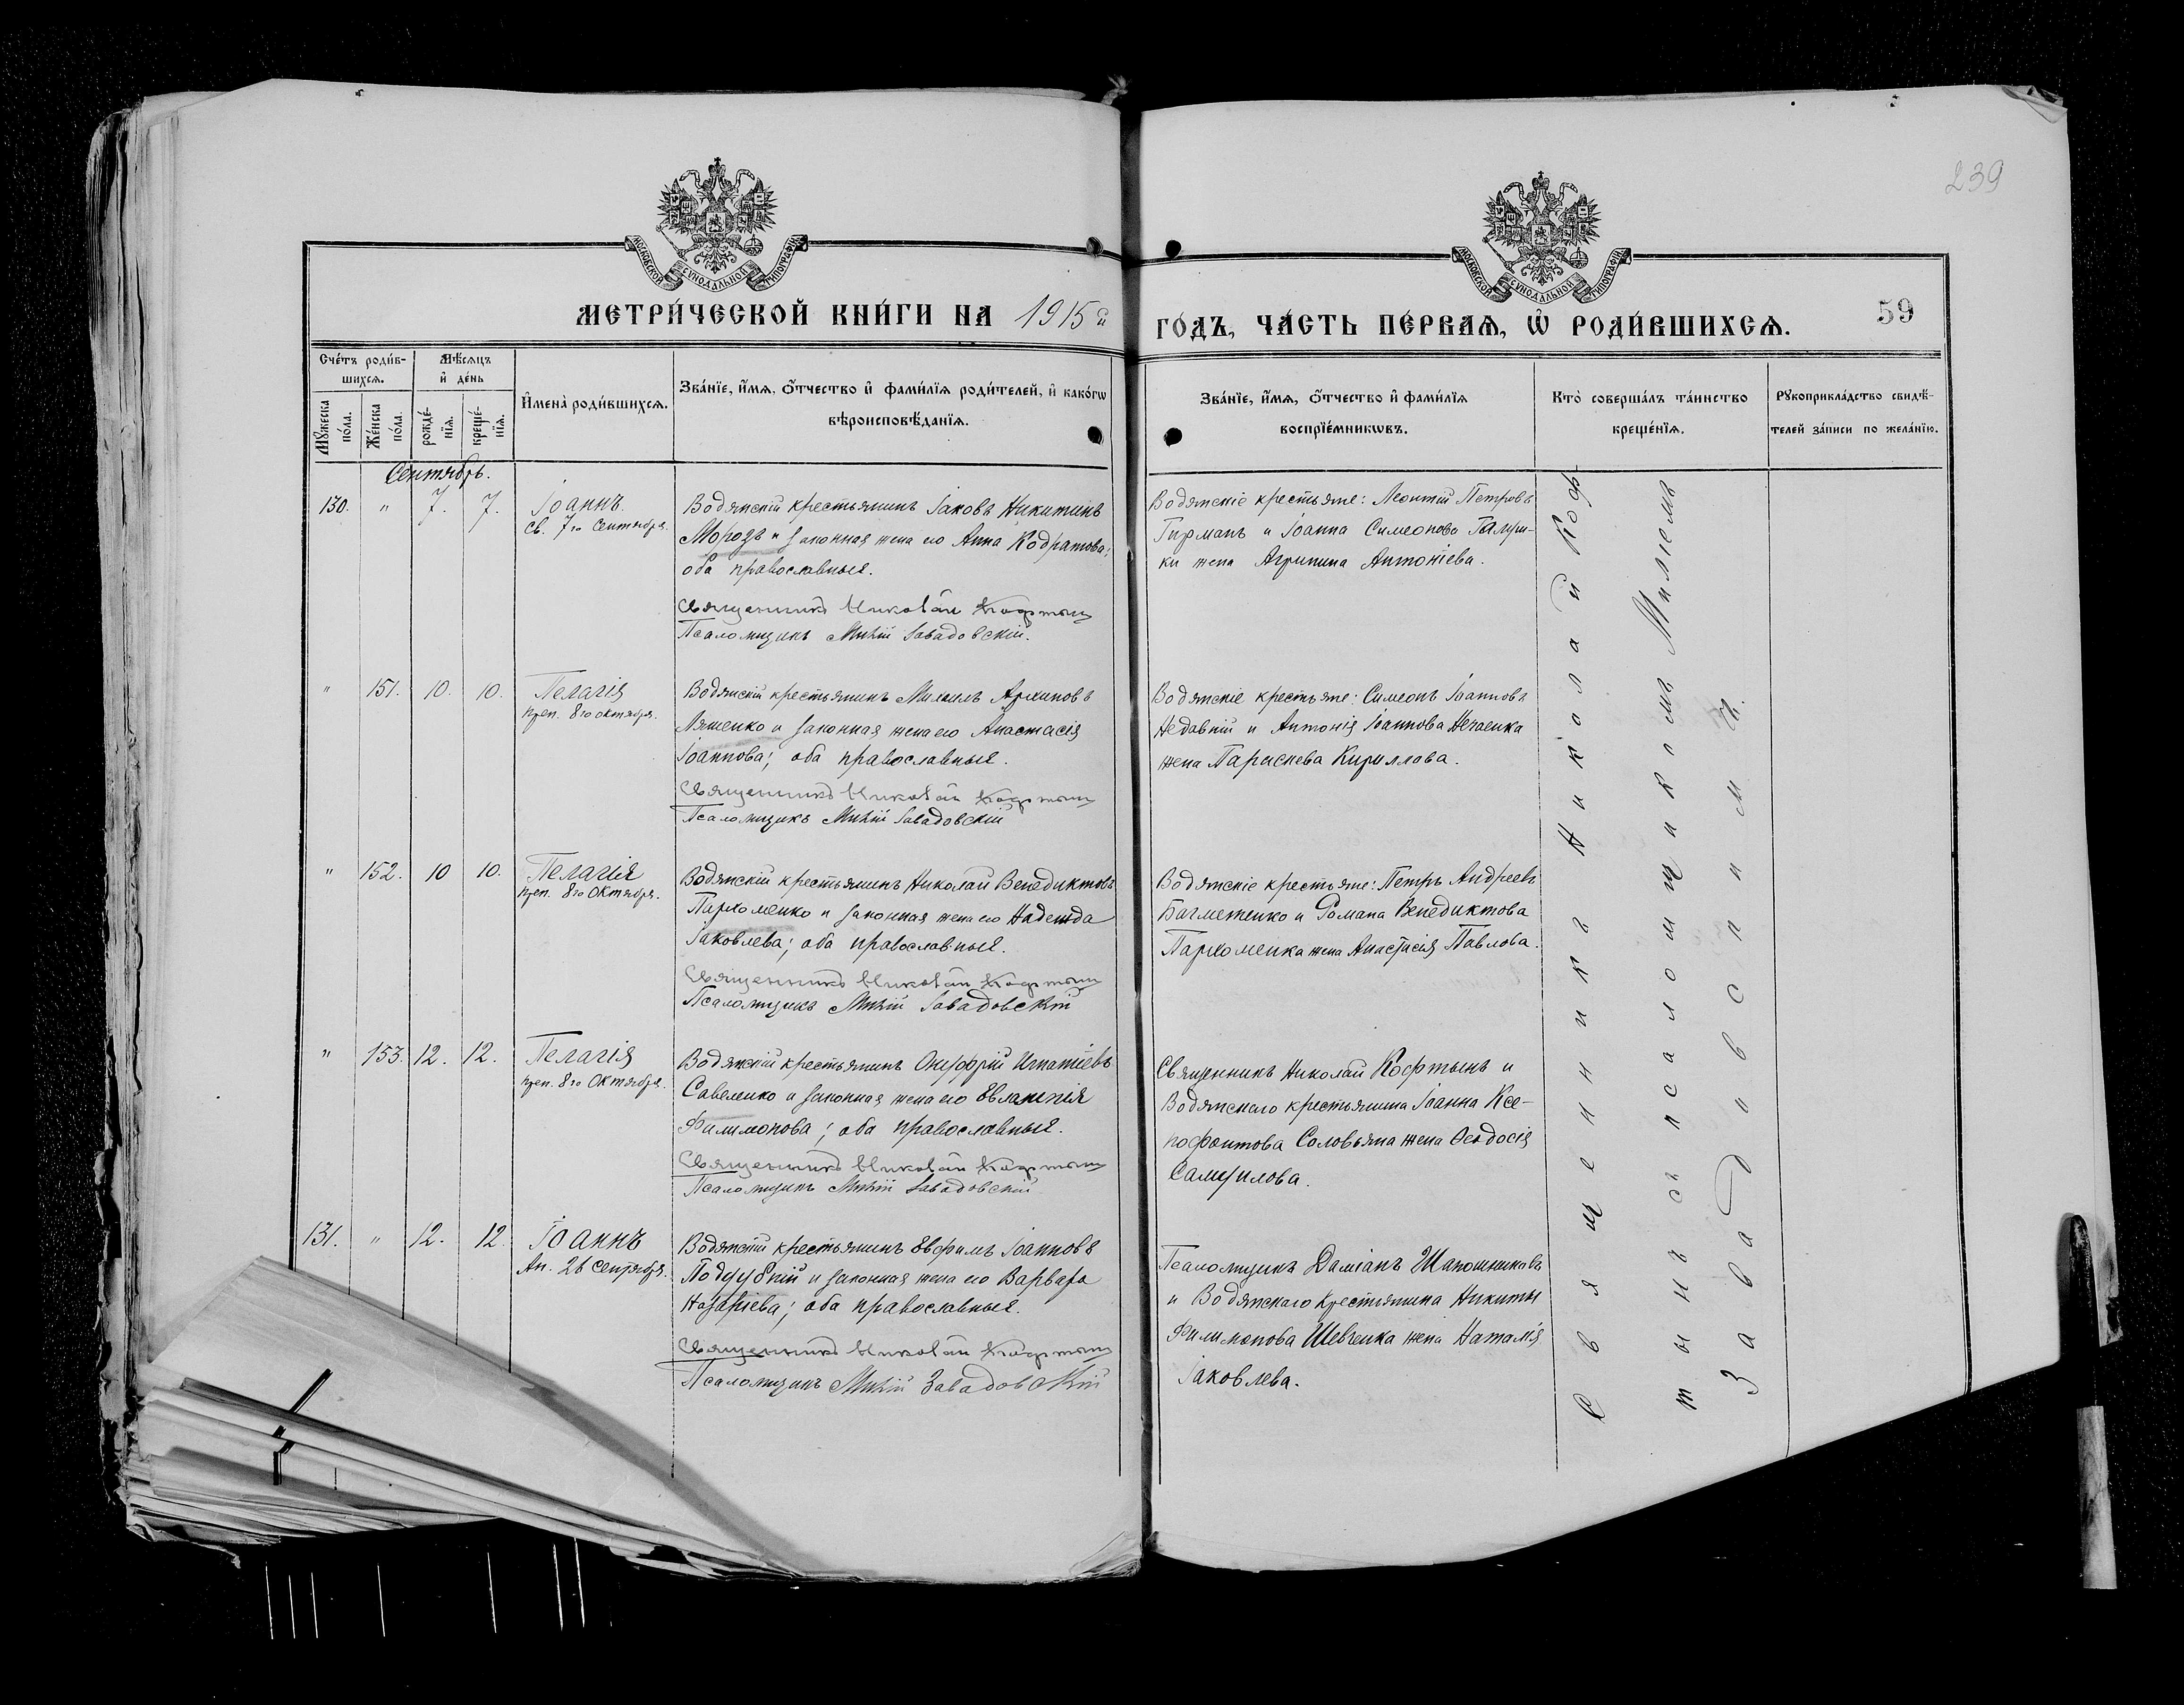 239
МОСКОВСКОЙ СѴНОДАЛЬНОЙ ТИПОГРАФІИ
МОСКОВСКОЙ СѴНОДАЛЬНОЙ ТИПОГРАФІИ
МЕТРИ́ЧЕСКОЙ КНИ́ГИ НА 1915 й
ГО́ДЪ, ЧА́СТЬ ПЕ́РВАѦ, Ѡ҆ РОДИ́ВШИХСѦ.
59
Сче́тъ роди́в-
шихсѧ.
Мꙋ́жеска по́ла.
Же́нска по́ла.
Мѣ́сѧцъ
и҆ де́нь
рожде́-
нїѧ.
креще́-
нїѧ.
И҆мена̀ роди́вшихсѧ.
Зва́нїе, и҆́мѧ, ѻ҆́тчество и҆ фами́лїѧ роди́телей, и҆ како́гѡ
вѣроисповѣ́данїѧ.
Зва́нїе, и҆́мѧ, ѻ҆́тчество и҆ фами́лїѧ
воспрїе́мникѡвъ.
Кто̀ соверша́лъ та́инство
креще́нїѧ.
Рꙋкоприкла́дство свидѣ́-
телей за́писи по жела́нїю.
Сентябрь.
130. " 7. 7. Іоаннъ.
св. 7го Сентября.
Водянскій крестьянинъ Іаковъ Никитинъ
Морозъ и законная жена его Анна Кодратова;
оба православные.
Священникъ Николай Кофтынъ
Псаломщикъ Милій Завадовскій.
Водянскіе крестьяне: Леонтій Петровъ
Гирманъ и Іоанна Симеонова Галуш-
ки жена Агрипина Антоніева.
" 151. 10. 10. Пелагія
преп. 8го октября.
Водянскій крестьянинъ Михаилъ Архиповъ
Ляшенко и законная жена его Анастасія
Іоаннова; оба православные.
Священникъ Николай Кофтынъ
Псаломщикъ Милій Завадовскій
Водянскіе крестьяне: Симеонъ Іоанновъ
Недавній и Антонія Іоаннова Нечаенка
жена Параскева Кириллова.
" 152. 10 10. Пелагія
преп. 8го Октября.
Водянскій крестьянинъ Николай Венедиктовъ
Пархоменко и законная жена его Надежда
Іаковлева; оба православные.
Священникъ Николай Кофтынъ
Псаломщикъ Милій Завадовскій
Водянскіе крестьяне: Петръ Андреевъ
Багметенко и Романа Венедиктова
Пархоменка жена Анастасія Павлова.
" 153. 12. 12. Пелагія
преп. 8го Октября.
Водянскій крестьянинъ Онуфрій Игнатіевъ
Савеленко и законная жена его Евлампія
Филимонова; оба православные.
Священникъ Николай Кофтынъ
Псаломщикъ Милій Завадовскій
Священникъ Николай Кофтынъ и
Водянскаго крестьянина Іоанна Ксе-
нофонтова Соловьяна жена Ѳеодосія
Самуилова.
131. " 12. 12. Іоаннъ
Ап. 26 Сентября.
Водянскій крестьянинъ Евфимъ Іоанновъ
Поддубній и законная жена его Варвара
Назаріева; оба православные.
Священникъ Николай Кофтынъ
Псаломщикъ Милій Завадовскій
Псаломщикъ Даміанъ Шапошниковъ
и Водянскаго крестьянина Никиты
Филимонова Шевченка жена Наталія
Іаковлева.
Священникъ Николай Коф-
тынъ съ псаломщикомъ Миліемъ
Завадовскимъ.